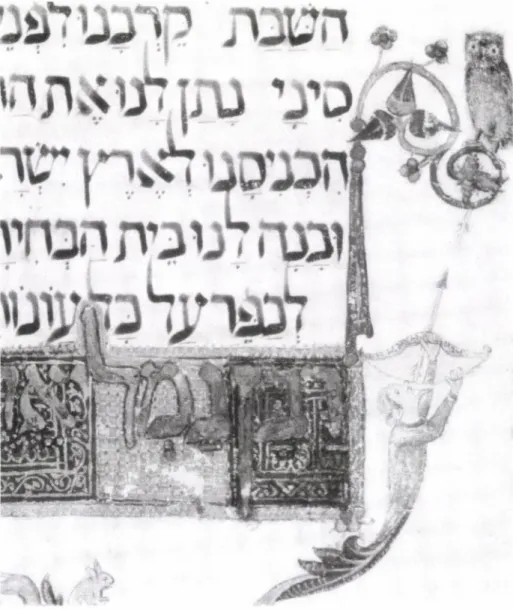 השבת קרבנו לפני
סיני נתן לנו את
הכניסנו לארץ ישר
ובנה לנו בית הבחיר
לכפר על כל עונו